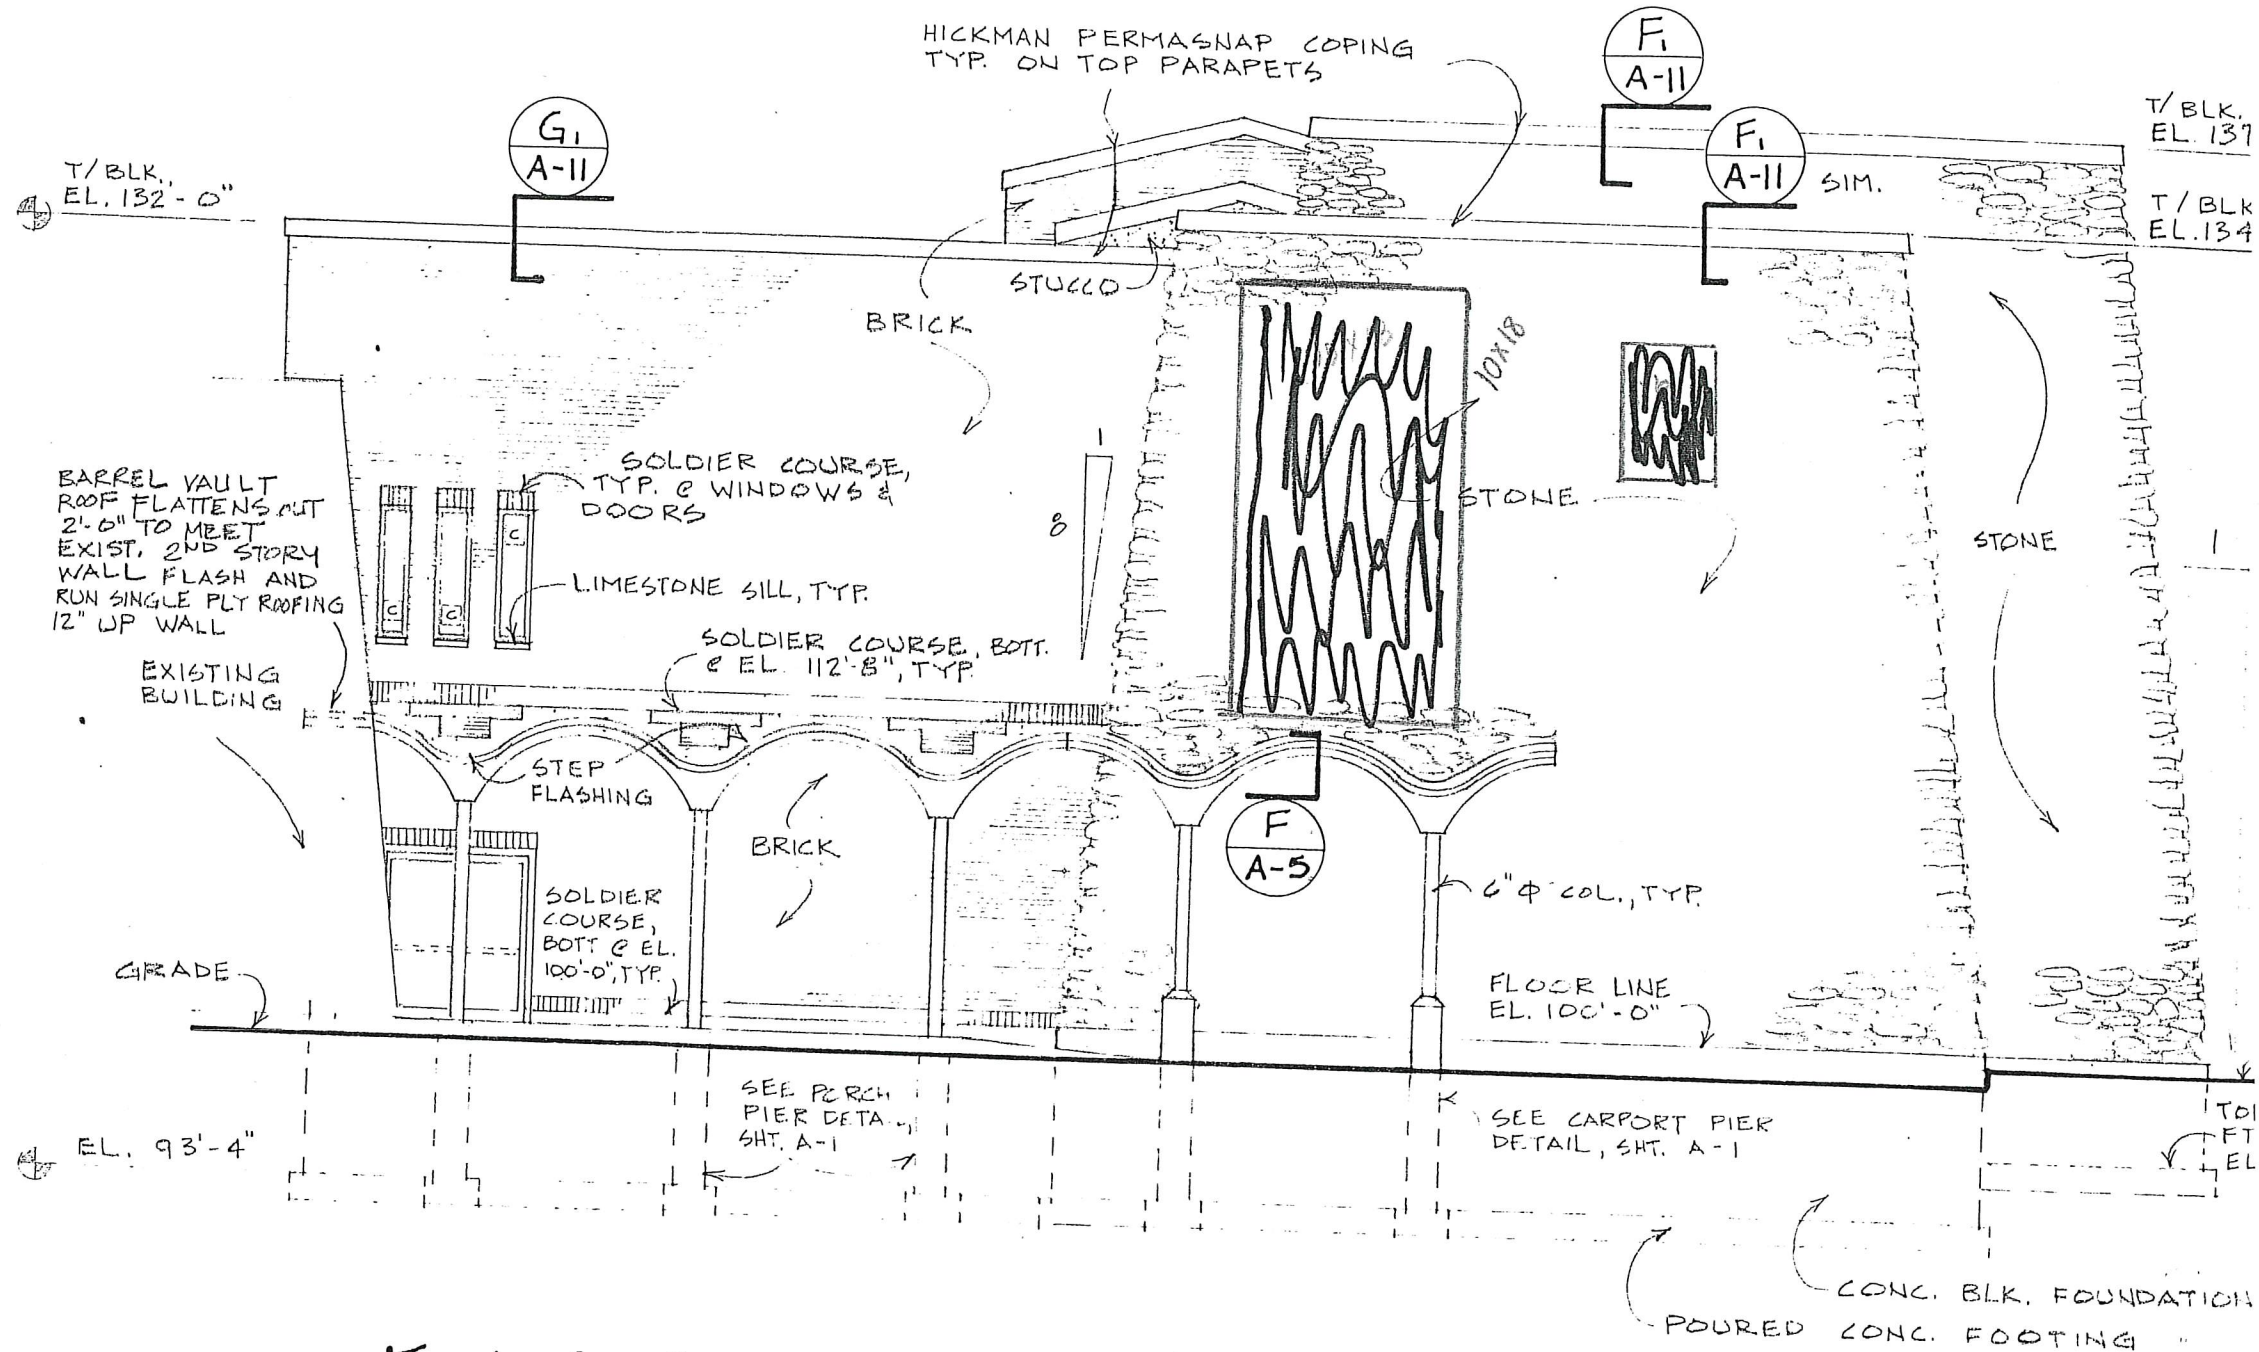 HICKMAN PERMASNAP COPING
TYP. ON TOP PARAPETS
F1
A-11
F1
A-11
SIM.
G1
A-11
T/BLK.
EL. 137
T/BLK
EL. 134
T/BLK.
EL. 132'-0"
STUCCO
BRICK
10x18
SOLDIER COURSE,
TYP. @ WINDOWS &
DOORS
STONE
STONE
1
8
1
BARREL VAULT
ROOF FLATTENS OUT
2'-0" TO MEET
EXIST. 2ND STORY
WALL FLASH AND
RUN SINGLE PLY ROOFING
12" UP WALL
C
C
C
LIMESTONE SILL, TYP.
SOLDIER COURSE, BOTT.
@ EL. 112'-8", TYP.
EXISTING
BUILDING
STEP
FLASHING
BRICK
F
A-5
6" Φ COL., TYP.
SOLDIER
COURSE,
BOTT @ EL.
100'-0", TYP.
GRADE
FLOOR LINE
EL. 100'-0"
SEE PORCH
PIER DETA
SHT. A-1
SEE CARPORT PIER
DETAIL, SHT. A-1
FT
EL
EL. 93'-4"
CONC. BLK. FOUNDATION
POURED CONC. FOOTING